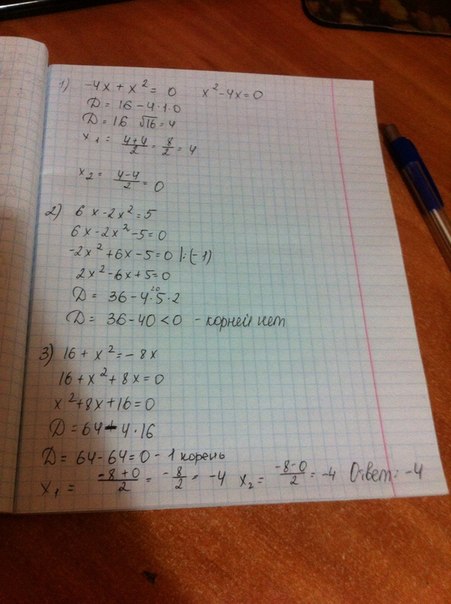 1) -4x + x² = 0 x² - 4x = 0
D = 16 - 4·1·0
D = 16 √16 = 4
x₁ = (4+4)/2 = 8/2 = 4
x₂ = (4-4)/2 = 0
2) 6x - 2x² = 5
6x - 2x² - 5 = 0
-2x² + 6x - 5 = 0 |:(-1)
2x² - 6x + 5 = 0
D = 36 - 4·5·2
D = 36 - 40 < 0 - корней нет
3) 16 + x² = -8x
16 + x² + 8x = 0
x² + 8x + 16 = 0
D = 64 - 4·16
D = 64 - 64 = 0 - 1 корень
x₁ = (-8+0)/2 = -8/2 = -4 x₂ = (-8-0)/2 = -4 Ответ: -4